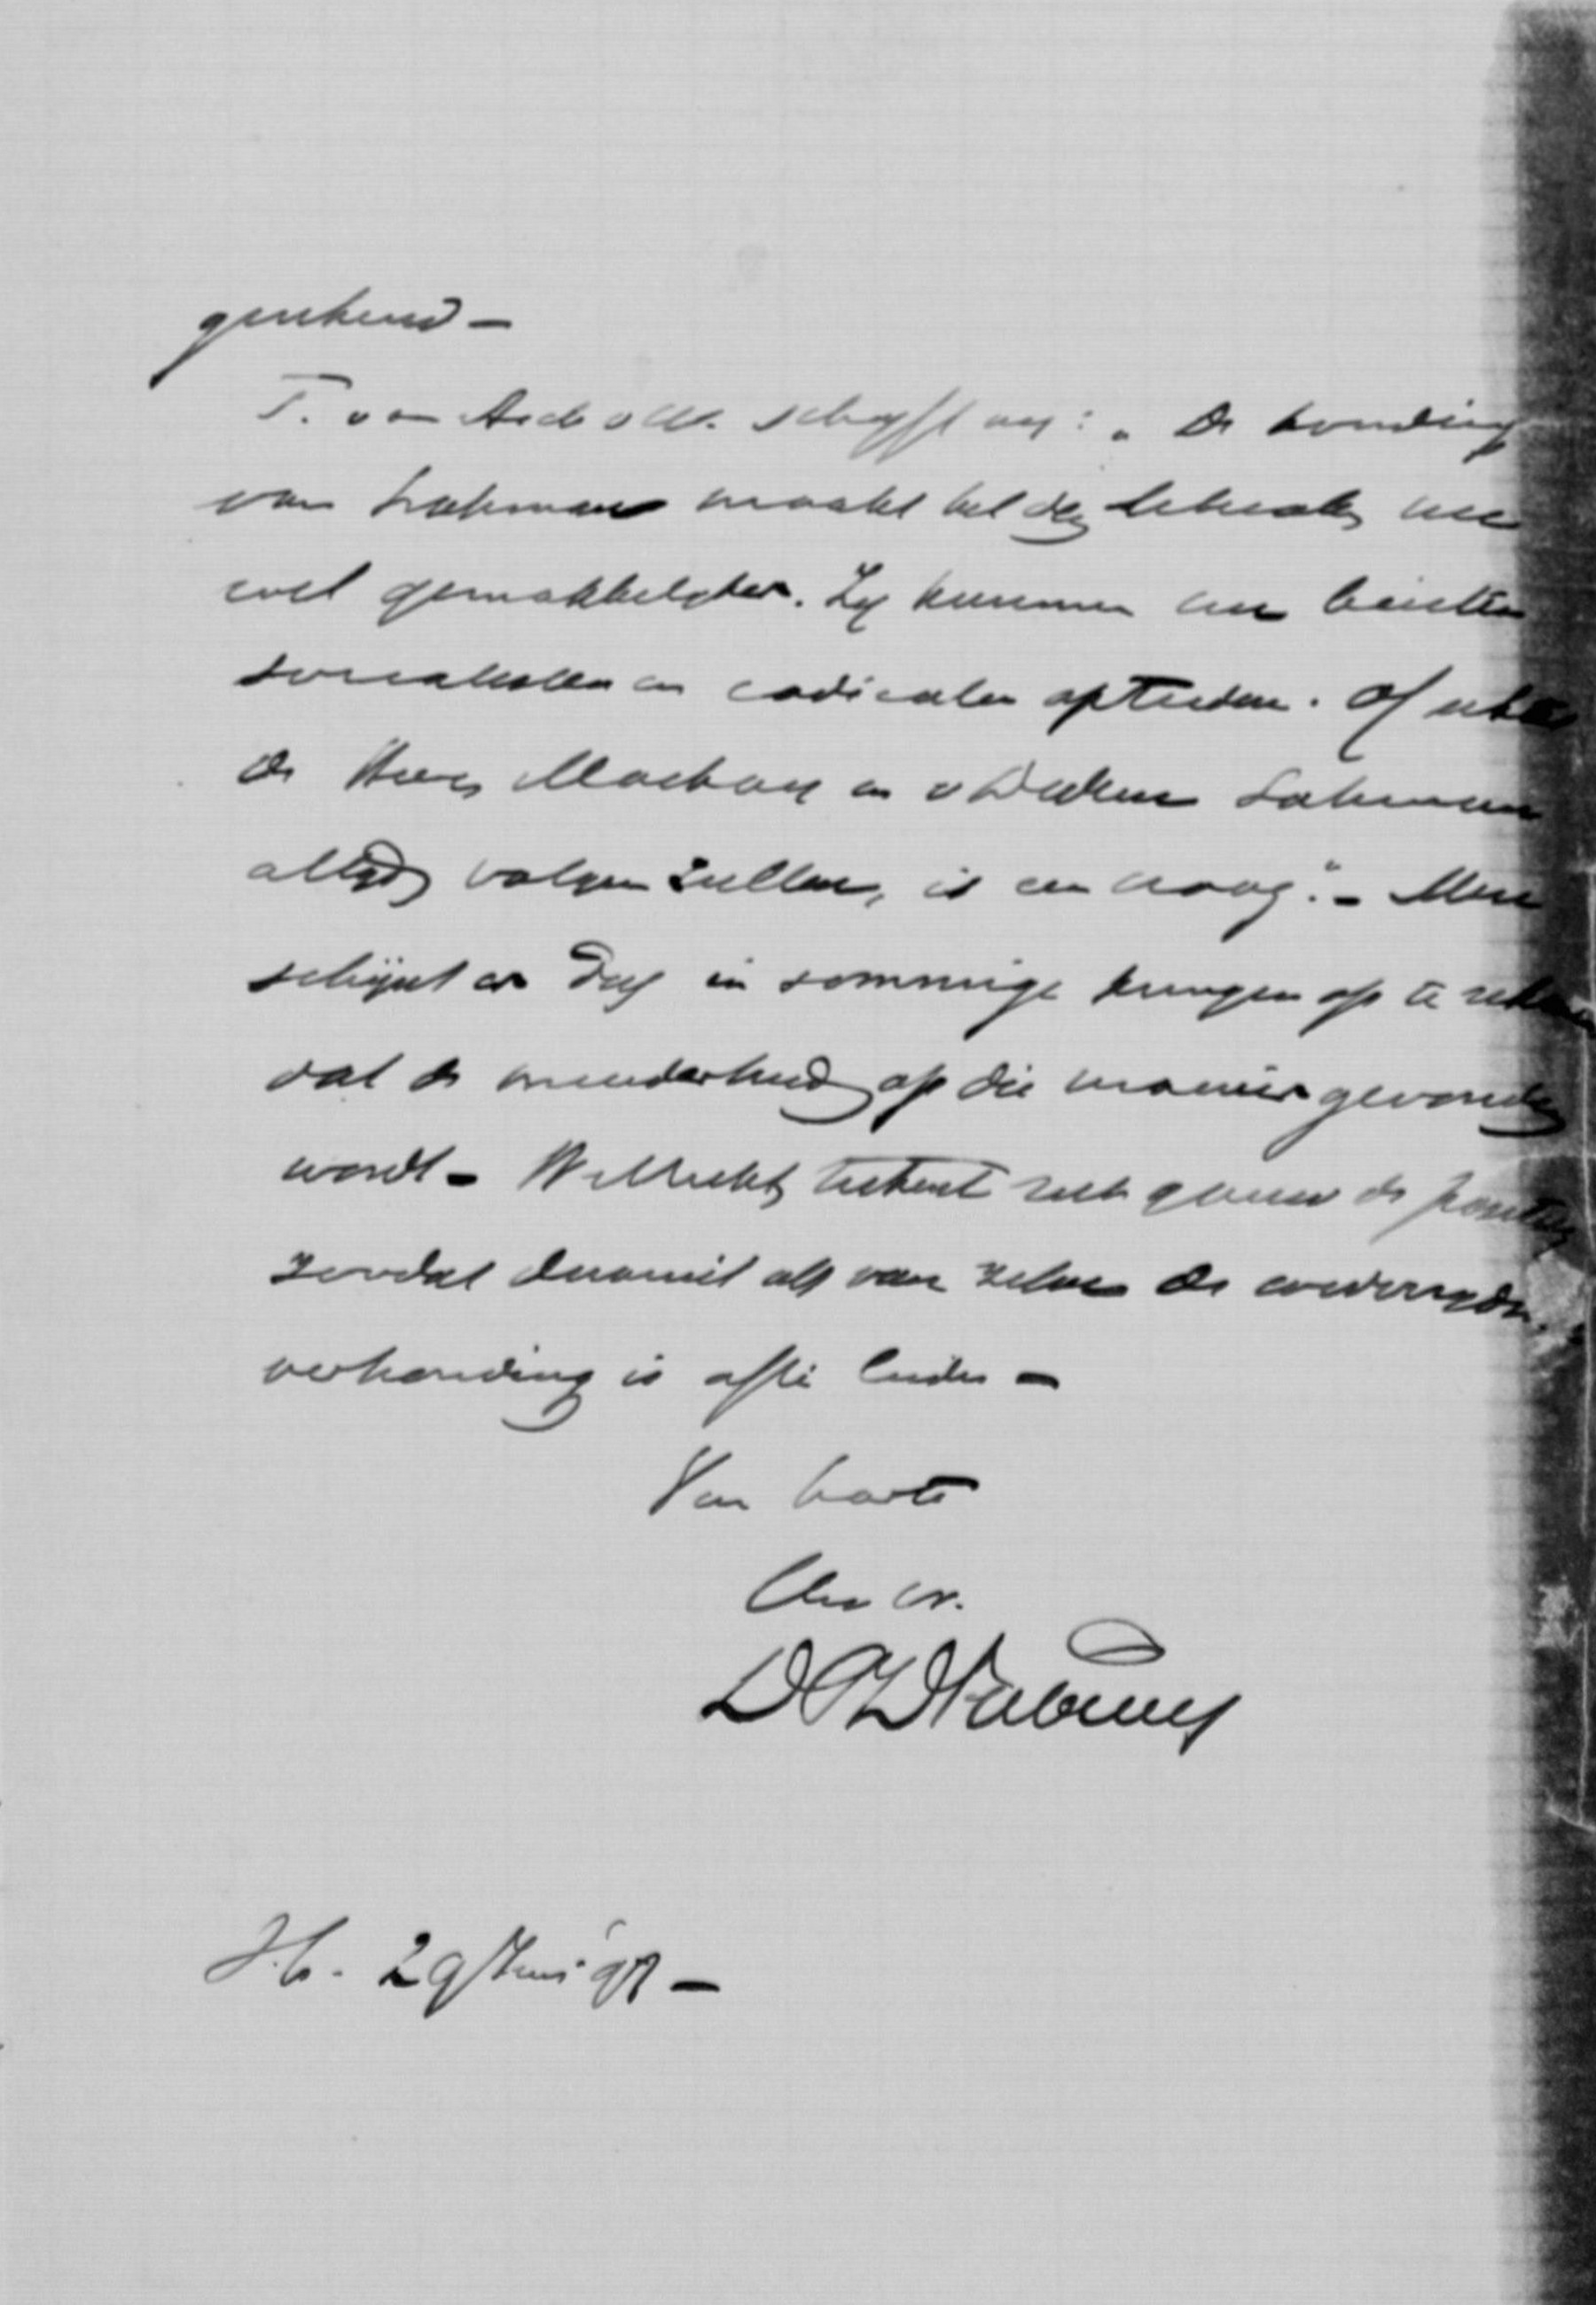 gerekend –
T. van Asch v W. schrijft mij: „De houding
van Lohman maakt het den liberalen nu
wel gemakkelijker. Zij kunnen nu buiten
socialisten en radicalen optreden. Of echter
de Heeren Mackay en v Dedem Lohman
altijd volgen zullen, is een vraag". – Men
schijnt er dus in sommige kringen op te rekenen
dat de meerderheid op die manier gevonden
wordt – Wellicht teekent zich gauw de positie
zoodat daaruit als van zelve de wederzijdsche
verhouding is af te leiden –
Van harte
Uw vr.
DPDFabius
H. 29 Juni 97 –